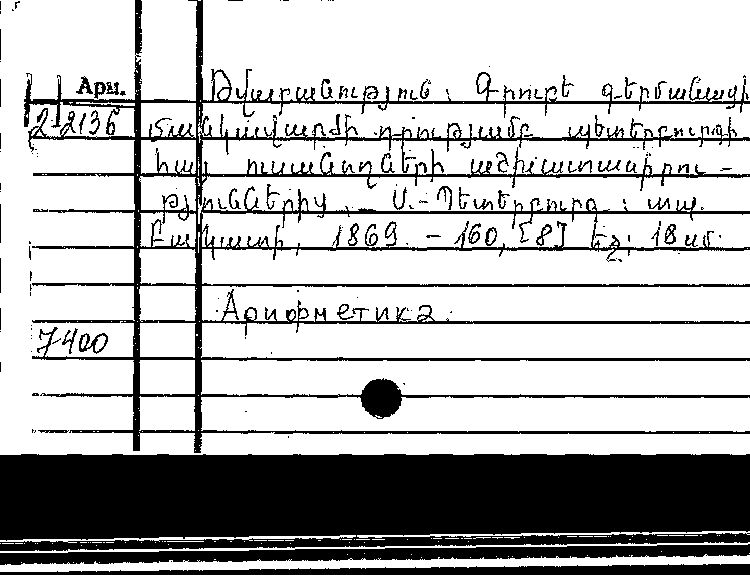 Арм.
2-2136
Թվաբանություն. Գրուբէ գերմանացի
մանկավարժի դրությամբ պետերբուրգի
հայ ուսանողների աշխատասիրու-
թյուններից. _ Ս.-Պետերբուրգ. տպ.
1869. - 160, [8] էջ; 18 սմ.
Арифметика.
7400